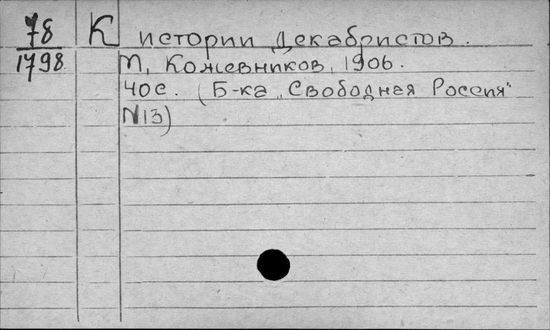 78 К истории Декабристов.
1798 М, Кожевников, 1906.
40с. (Б-ка „Свободная Россия"
N13)